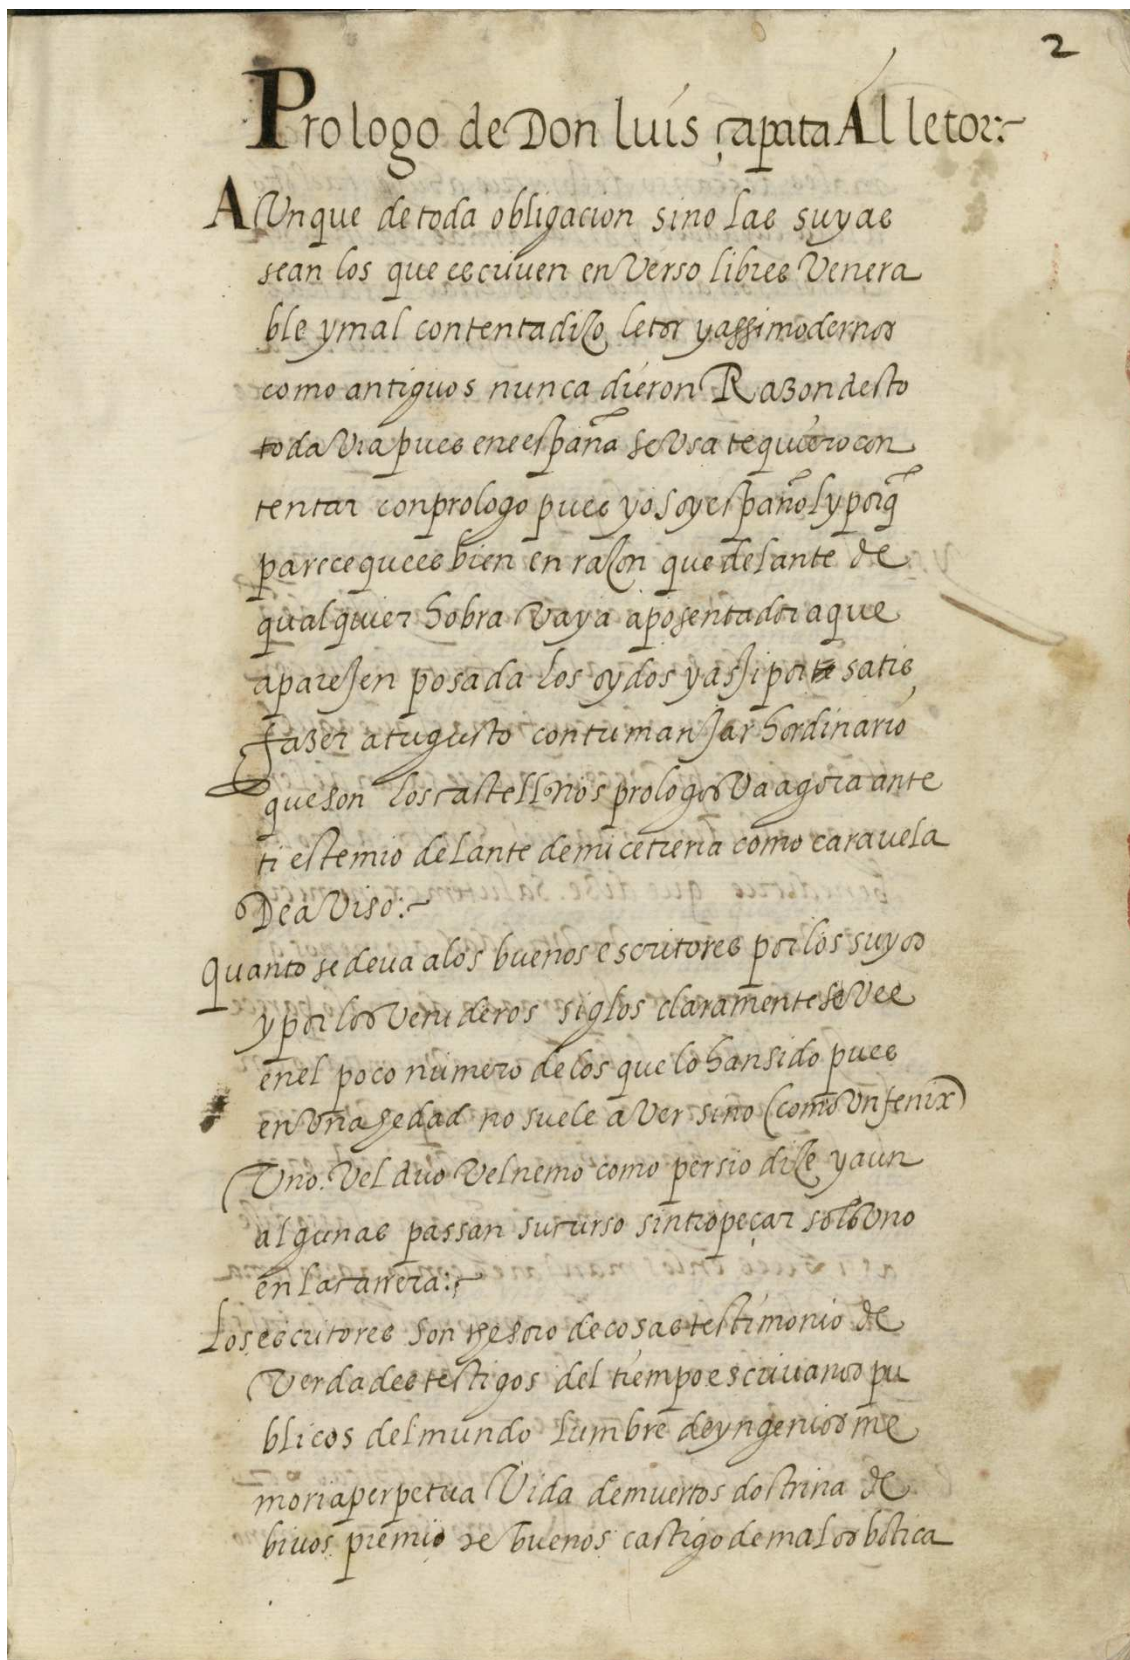 2
Prologo de Don luis çapata Al letor:~
AUnque de toda obligacion sino las suyas
sean los que escriven en Verso libres Venera
ble y mal contentadizo letor y assi modernos
como antiguos nunca dieron Razon desto
toda Via pues en españa se Usa te quiero con
tentar con prologo pues yo soy español y porq̃
parece que es bien en razon que delante de
qualquier hobra Vaya aposentador a que
aparejen posada los oydos y assi por satis
fazer a tu gusto con tu manjar hordinario
que son los castellanos prologos Va agora ante
ti este mio delante de mi cetreria como caravela
De aViso:~
Quanto se deva a los buenos escritores por los suyos
y por los Venideros siglos claramente se Vee
en el poco numero de los que lo han sido pues
en Una hedad no suele aVer sino (como Un fenix)
Uno. Vel duo Vel nemo como persio dize y aun
algunas passan su curso sin tropeçar solo Uno
en la carrera:~
Los escritores son thesoro de cosas testimonio de
Verdades testigos del tiempo escrivanos pu
blicos del mundo lumbre de yngenios me
moria perpetua Vida de muertos dostrina de
bivos premio de buenos castigo de malos botica